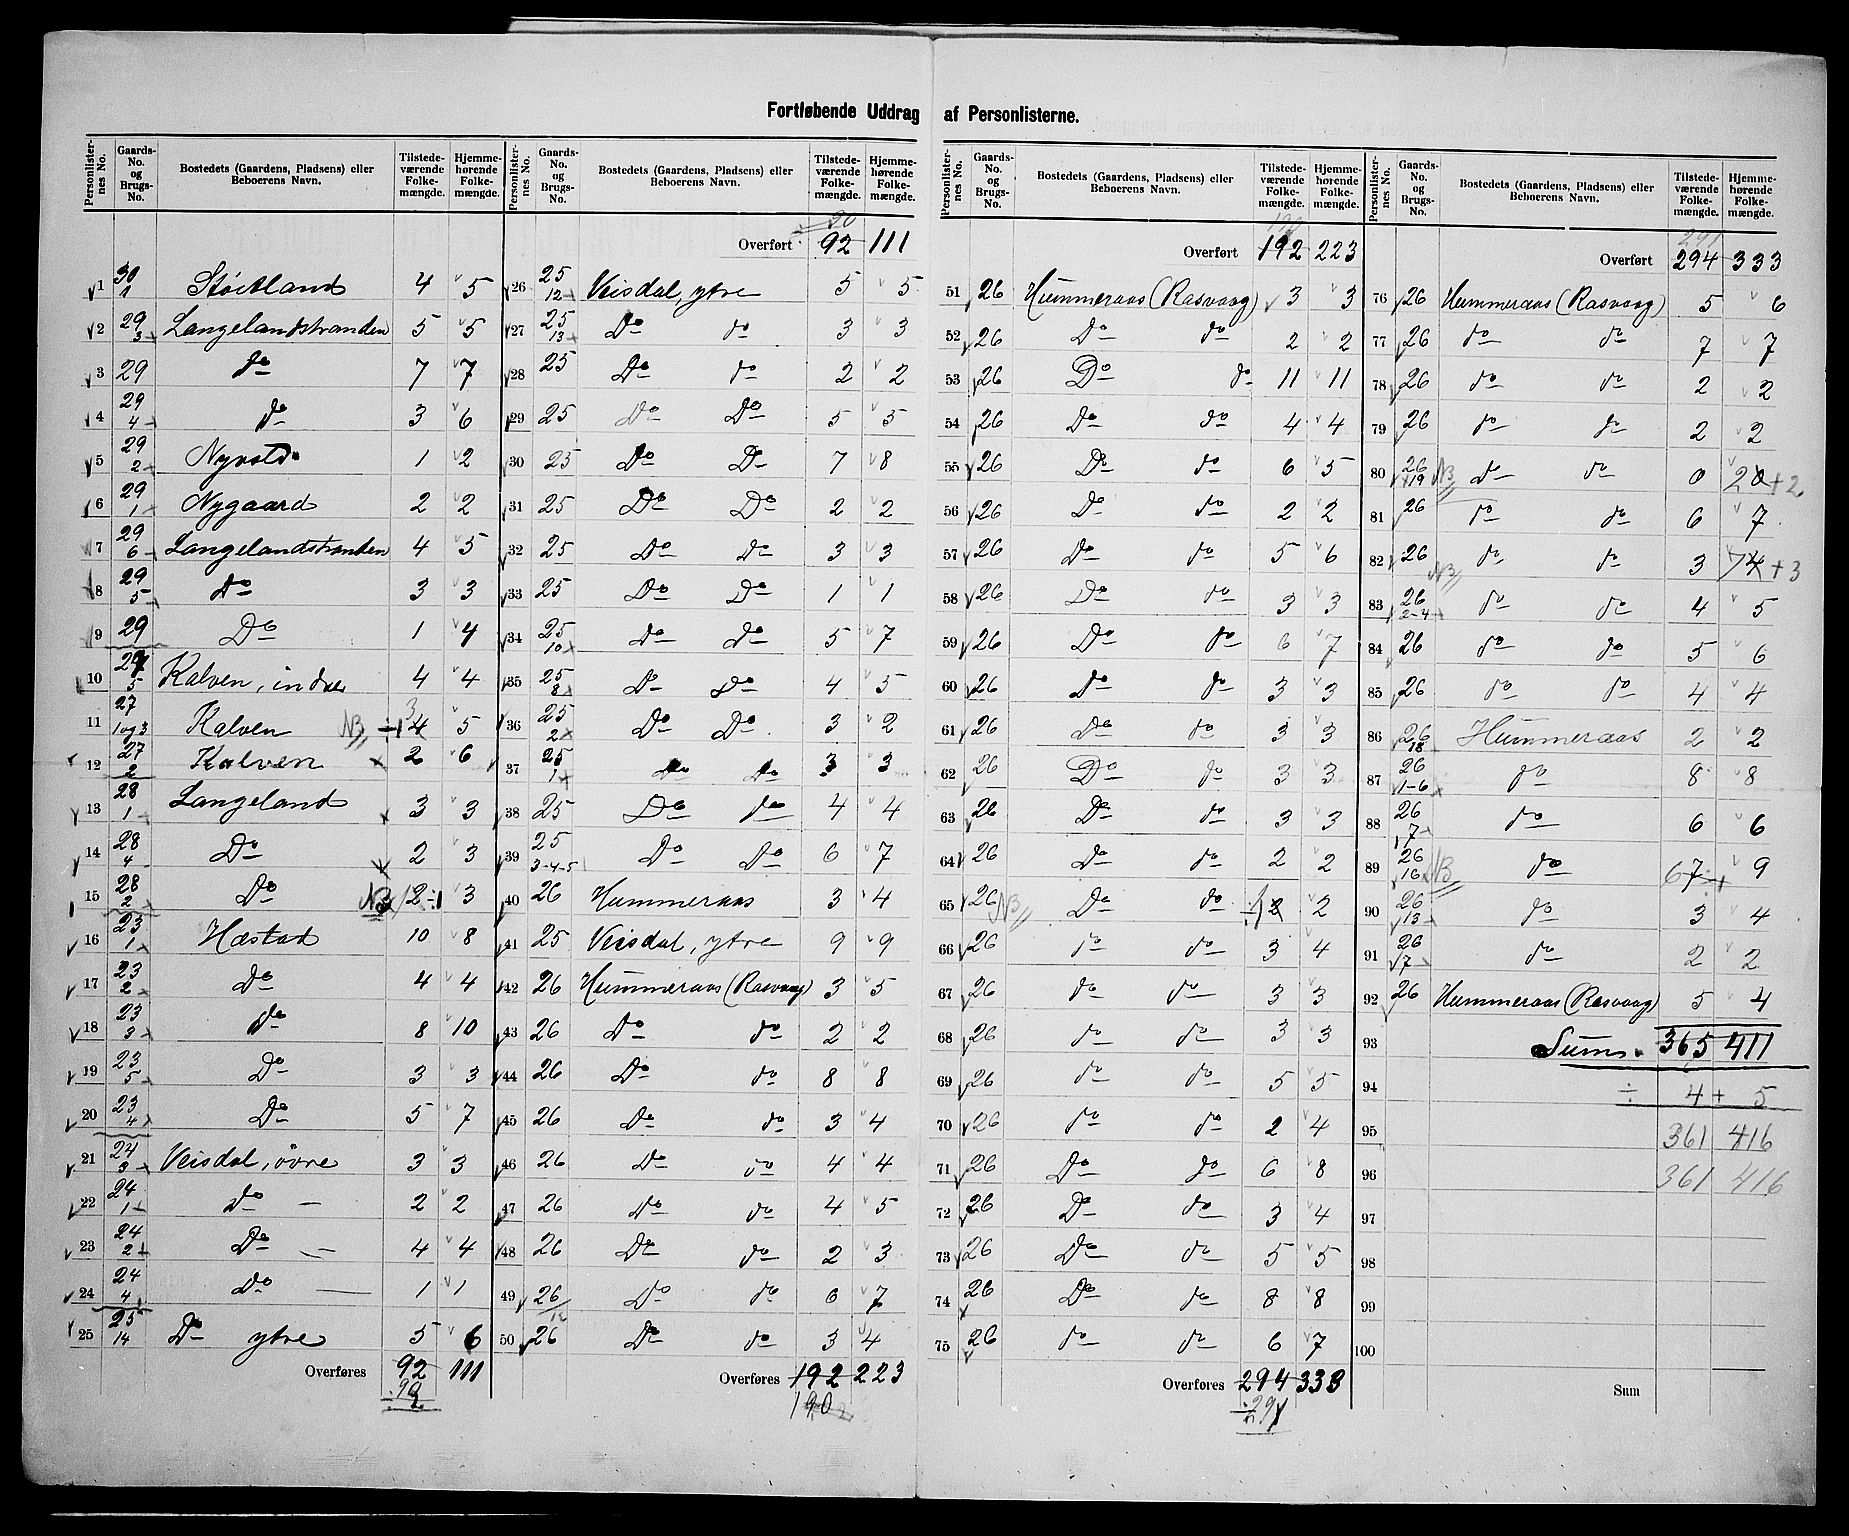 Fortløbende Uddrag af Personlisterne.
Personlister-nes No. | Gaards-No. og Brugs-No. | Bostedets (Gaardens, Pladsens) eller Beboerens Navn. | Tilstede-værende Folke-mængde. | Hjemme-hørende Folke-mængde.
1 | 30 1 | Støitland | 4 | 5
2 | 29 3 | Langelandstranden | 5 | 5
3 | 29 | do | 7 | 7
4 | 29 4 | do | 3 | 6
5 | 29 2 | Nyvold | 1 | 2
6 | 29 1 | Nygaard | 2 | 2
7 | 29 6 | Langelandstranden | 4 | 5
8 | 29 5 | Do | 3 | 3
9 | 29 | Do | 1 | 4
10 | 27 5 | Kalven, indre | 4 | 4
11 | 27 1 og 3 | Kalven | NB ÷1 4 3 | 5
12 | 27 2 | Kalven | 2 | 6
13 | 28 1 | Langeland | 3 | 3
14 | 28 4 | Do | 2 | 3
15 | 28 2 | Do | NB 2 ÷1 | 3
16 | 23 1 | Hæstad | 10 | 8
17 | 23 2 | Do | 4 | 4
18 | 23 3 | do | 8 | 10
19 | 23 5 | Do | 3 | 3
20 | 23 4 | Do | 5 | 7
21 | 24 3 | Veisdal, øvre | 3 | 3
22 | 24 1 | do — | 2 | 2
23 | 24 2 | Do — | 4 | 4
24 | 24 4 | do — | 1 | 1
25 | 25 14 | Do ytre | 5 | 6
Overføres | 92 | 111
90
Personlister-nes No. | Gaards-No. og Brugs-No. | Bostedets (Gaardens, Pladsens) eller Beboerens Navn. | Tilstede-værende Folke-mængde. | Hjemme-hørende Folke-mængde.
90
Overført | 92 | 111
26 | 25 12 | Veisdal, ytre | 5 | 5
27 | 25 13 | Do do | 3 | 3
28 | 25 | Do do | 2 | 2
29 | 25 | Do Do | 5 | 5
30 | 25 | Do Do | 7 | 8
31 | 25 | Do Do | 2 | 2
32 | 25 | Do Do | 3 | 3
33 | 25 | Do Do | 1 | 1
34 | 25 10 | Do do | 5 | 7
35 | 25 8 | Do Do | 4 | 5
36 | 25 2 | Do Do | 3 | 2
37 | 25 1 | Do Do | 3 | 3
38 | 25 | Do do | 4 | 4
39 | 25 3-4-5 | Do Do | 6 | 7
40 | 26 | Hummeraas | 3 | 4
41 | 25 | Veisdal, ytre | 9 | 9
42 | 26 | Hummeraas (Rasvaag) | 3 | 5
43 | 26 | Do do | 2 | 2
44 | 26 | Do do | 8 | 8
45 | 26 | Do do | 3 | 4
46 | 26 | Do do | 4 | 4
47 | 26 | Do do | 4 | 5
48 | 26 | Do do | 2 | 3
49 | 26 12 | Do do | 6 | 7
50 | 26 | Do do | 3 | 4
Overføres | 192 | 223
190
Personlister-nes No. | Gaards-No. og Brugs-No. | Bostedets (Gaardens, Pladsens) eller Beboerens Navn. | Tilstede-værende Folke-mængde. | Hjemme-hørende Folke-mængde.
190
Overført | 192 | 223
51 | 26 | Hummeraas (Rasvaag) | 3 | 3
52 | 26 | Do do | 2 | 2
53 | 26 | Do do | 11 | 11
54 | 26 | Do do | 4 | 4
55 | 26 | Do do | 6 | 5
56 | 26 | Do do | 2 | 2
57 | 26 | Do do | 5 | 6
58 | 26 | Do do | 3 | 3
59 | 26 | Do do | 6 | 7
60 | 26 | Do do | 3 | 3
61 | 26 | Do do | 3 | 3
62 | 26 | Do do | 3 | 3
63 | 26 | Do do | 3 | 3
64 | 26 | Do do | 2 | 2
65 | 26 | NB Do do | ÷1 2 | 2
66 | 26 | do do | 3 | 4
67 | 26 | do do | 3 | 3
68 | 26 | do do | 3 | 3
69 | 26 | do do | 5 | 5
70 | 26 | do do | 2 | 4
71 | 26 | Do do | 6 | 8
72 | 26 | Do do | 3 | 4
73 | 26 | Do do | 5 | 5
74 | 26 | Do do | 8 | 8
75 | 26 | do do | 6 | 7
Overføres | 294 | 333
291
Personlister-nes No. | Gaards-No. og Brugs-No. | Bostedets (Gaardens, Pladsens) eller Beboerens Navn. | Tilstede-værende Folke-mængde. | Hjemme-hørende Folke-mængde.
291
Overført | 294 | 333
76 | 26 | Hummeraas (Rasvaag) | 5 | 6
77 | 26 | do do | 7 | 7
78 | 26 | do do | 2 | 2
79 | 26 | do do | 2 | 2
80 | 26 19 | NB do do | 0 | 2 0 + 2
81 | 26 | do do | 6 | 7
82 | 26 | do do | 3 | 7 4 + 3
83 | 26 2-4 | NB do do | 4 | 5
84 | 26 | do do | 5 | 6
85 | 26 | do do | 4 | 4
86 | 26 18 | Hummeraas | 2 | 2
87 | 26 1-6 | do | 8 | 8
88 | 26 7 | do | 6 | 6
89 | 26 16 | NB do | 6 7 ÷1 | 9
90 | 26 13 | do | 3 | 4
91 | 26 7 | do | 2 | 2
92 | 26 | Hummeraas (Rasvaag) | 5 | 4
93 | Sum | 365 | 411
94 | ÷ 4 | + 5
95 | 361 | 416
96 | 361 | 416
97
98
99
100
Sum